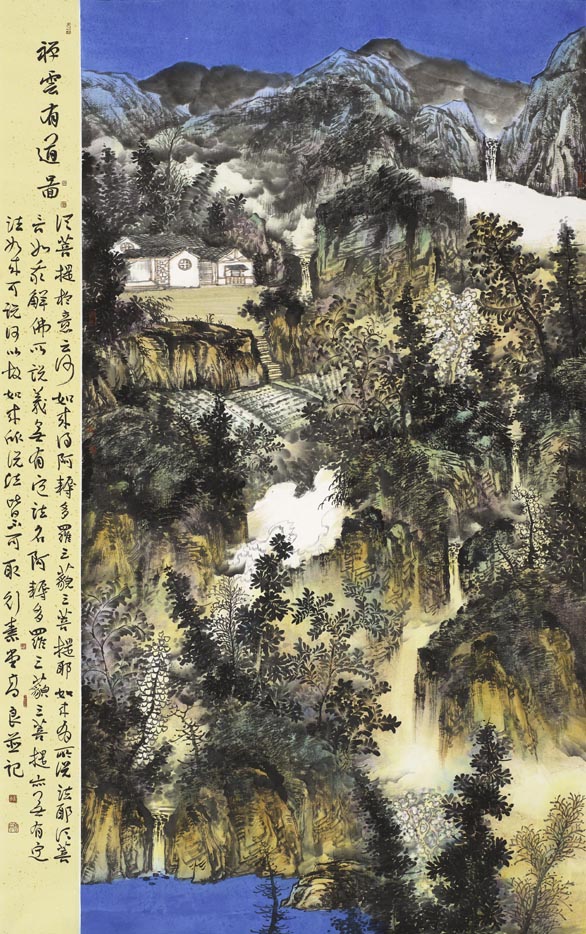 禪雲有道圖
須菩提於意云何如來得阿耨多羅三藐三菩提耶如來有所說法耶須菩
言如我解佛所說義無有定法名阿耨多羅三藐三菩提亦無有定
法如來可說何以故如來所說法皆不可取 素堂高良並記